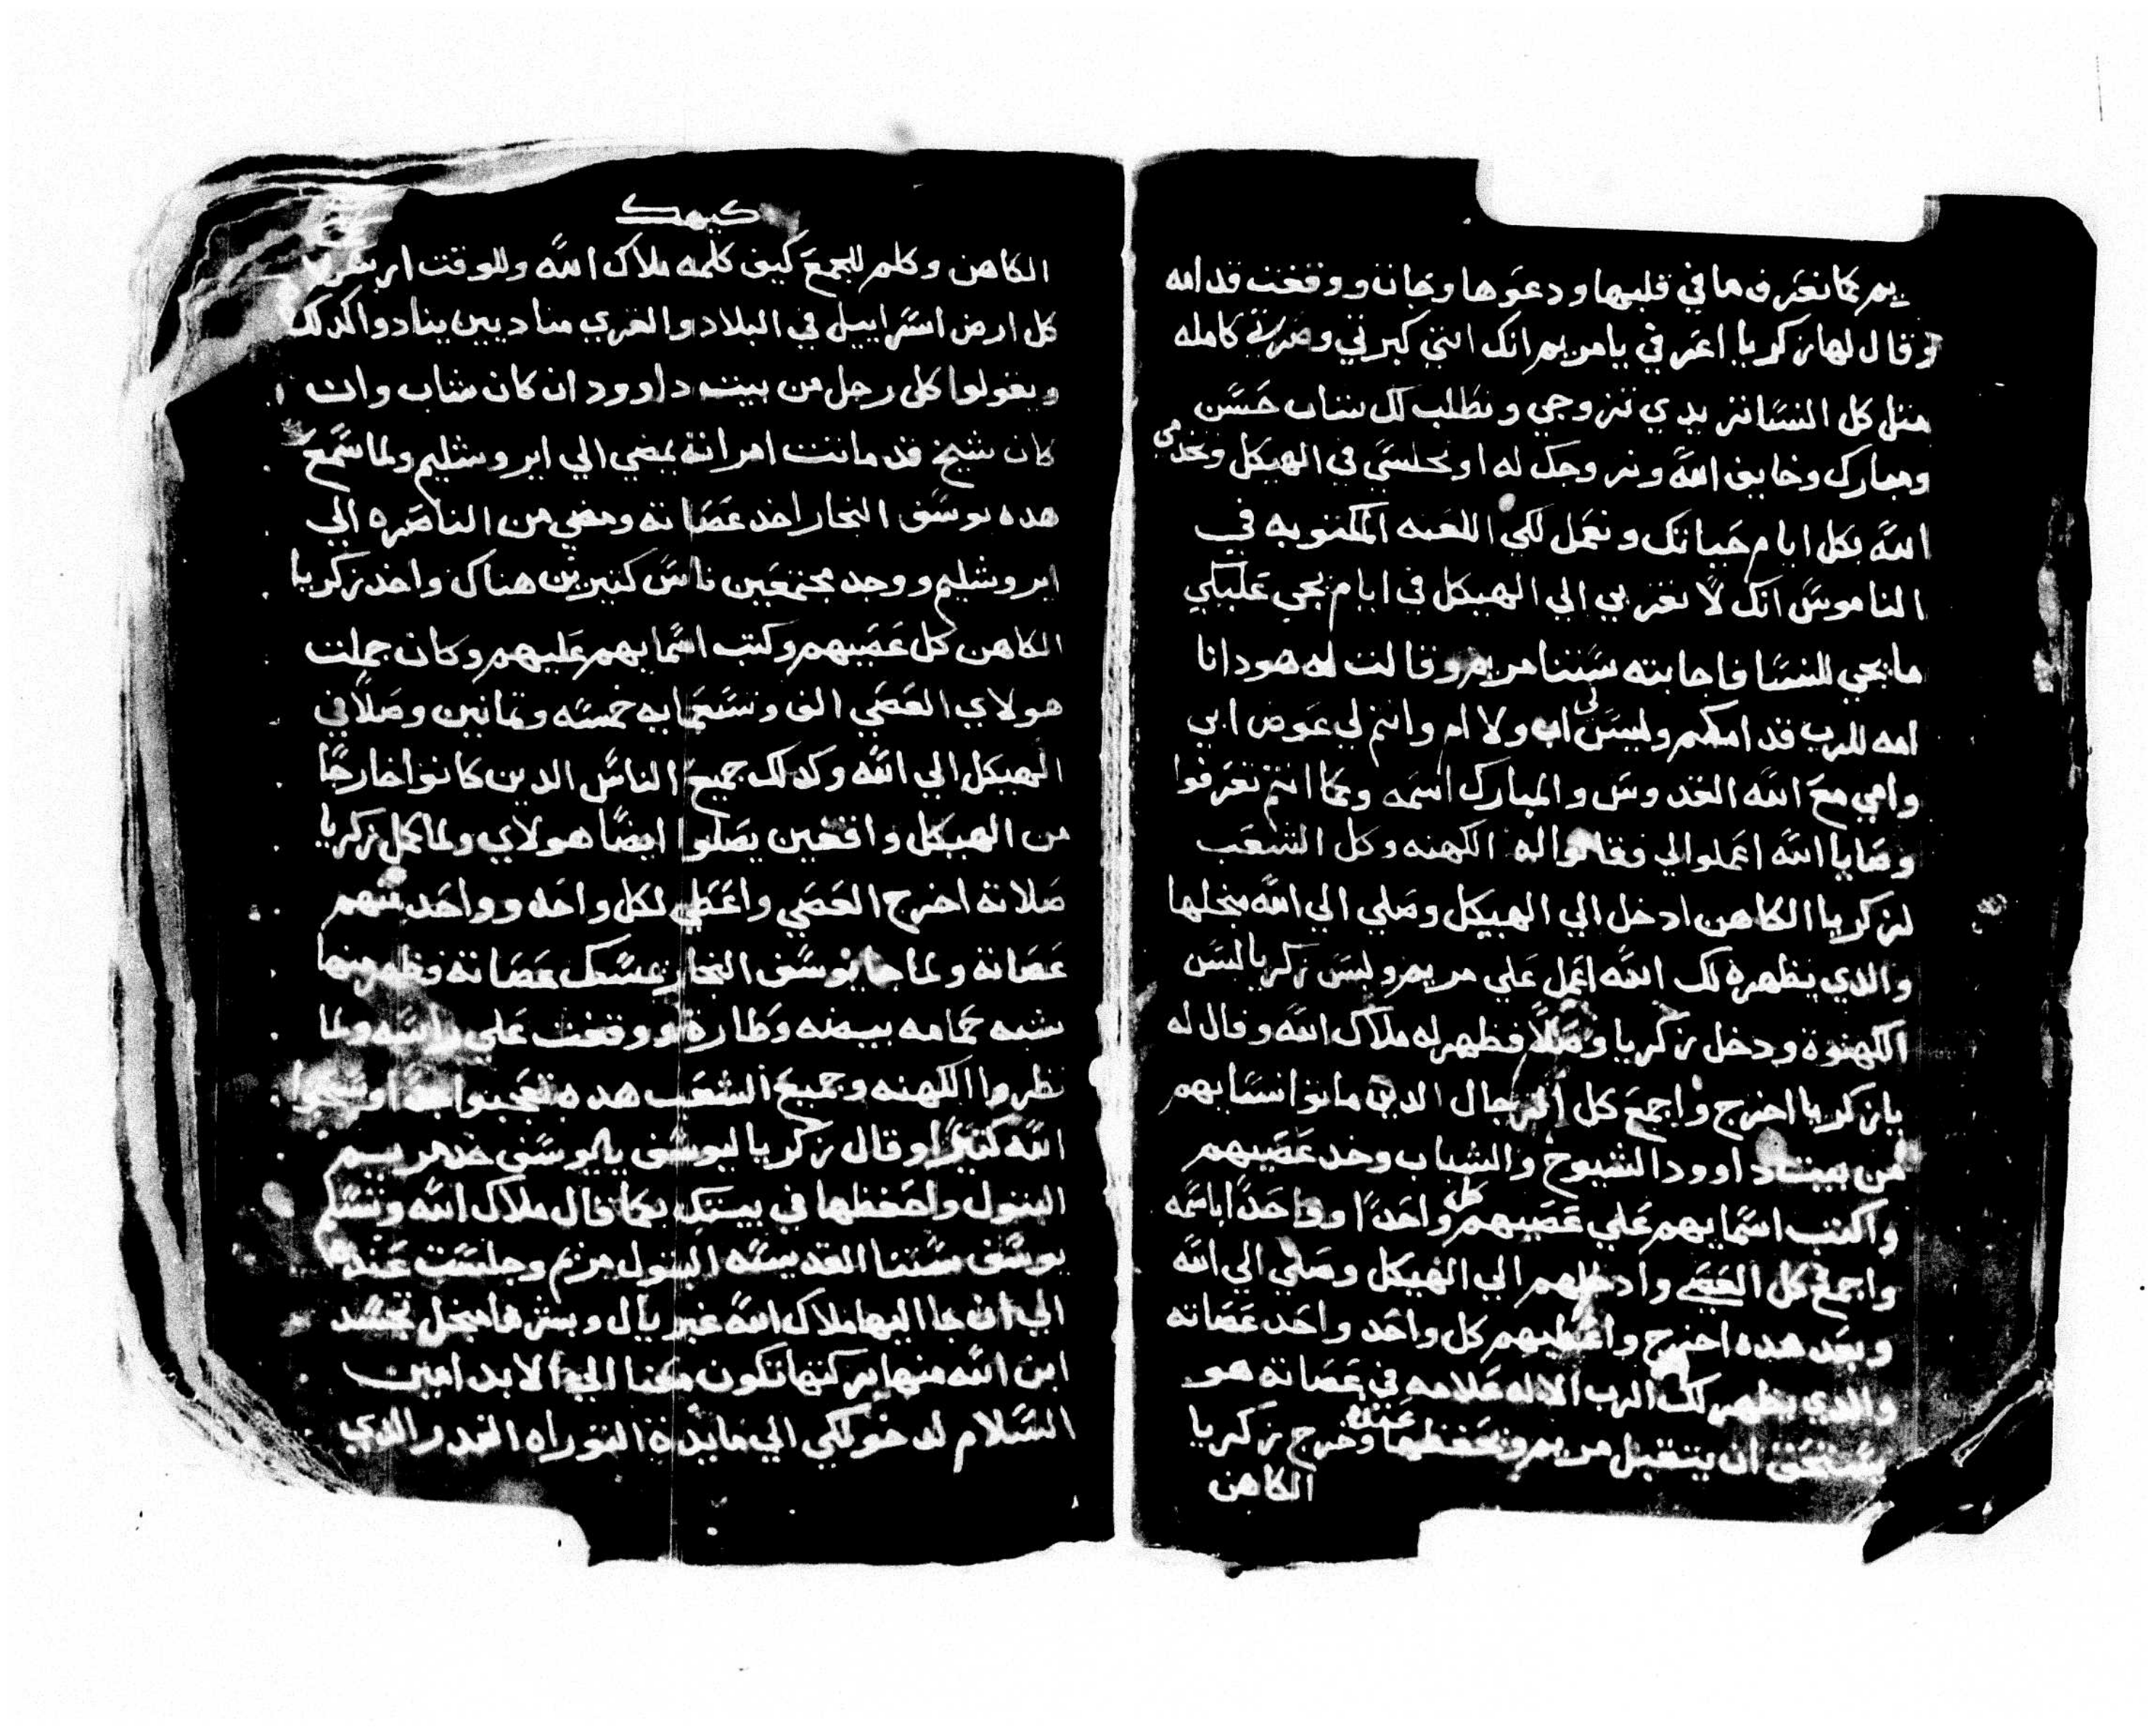 يم بما نعرف ما في قلبها ودعوها وجات ووقفت قدامه
وقال لها زكريا اعرفي يا مريم انك انتي كبرتي وصرتي كامله
مثل كل النسا تريدي تتزوجي ونطلب لك شاب حسن
ومبارك وخايف الله ونزوجك له او تجلسي في الهيكل وتخدمي
الله بكل ايام حياتك ونعمل لكي اللعنه المكتوبه في
الناموس انك لا تقربي الي الهيكل في ايام يجي عليكي
ما يجي للنسا فاجابته ستنا مريم وقالت له هودا انا
امه للرب قدامكم وليس لي اب ولا ام وانتم لي عوض ابي
وامي مع الله القدوس والمبارك اسمه وبما انتم تعرفوا
وصايا الله اعملوا لي فقالوا له الكهنه وكل الشعب
لزكريا الكاهن ادخل الي الهيكل وصلي الي الله منجلها
والذي يظهره لك الله اعمل علي مريم ولبس زكريا لبس
الكهنوة ودخل زكريا وصلا فظهر له ملاك الله وقال له
يا زكريا اخرج واجمع كل الرجال الدين ماتوا نسايهم
من بيت داوود الشيوخ والشباب وخد عصيهم
واكتب اسمايهم علي عصيهم كل واحدا وواحدا باسمه
واجمع كل العصي وادخلهم الي الهيكل وصلي الي الله
وبعد هده اخرج واعطيهم كل واحد واحد عصاته
والدي يظهر لك الرب الاله علامه في عصاته هو
يستحق ان يتقبل مريم وتحفظها عنده وخرج زكريا
الكاهن
كيهك
الكاهن وكلم للجمع كيف كلمه ملاك الله وللوقت
كل ارض اسراييل في البلاد والقري مناديين ينادوا كدلك
ويقولوا كل رجل من بيت داوود ان كان شاب وان
كان شيخ قد ماتت امراته يمضي الي ايروشليم ولما سمع
هده يوسف النجار اخد عصاته ومضي من الناصره الي
ايروشليم ووجد مجتمعين ناس كتيرين هناك واخد زكريا
الكاهن كل عصيهم وكتب اسمايهم عليهم وكان جملت
هولاي العصي الف وستعمايه خمسه وتمانين وصلا في
الهيكل الي الله وكدلك جميع الناس الدين كانوا خارجا
من الهيكل واقفين يصلوا ايضا هولاي ولما كمل زكريا
صلاته اخرج العصي واعطي لكل واحد وواحد منهم
عصاته ولما جا يوسف النجار عسك عصاته فظهر منها
شبه حمامه بيضه وطارة ووقفت علي راسه ولما
نظروا الكهنه وجميع الشعب هده تعجبوا جدا وسبحوا
الله كتيرا وقال زكريا ليوسف يا يوسف خد مريم
البتول واحفظها في بيتك بما قال ملاك الله وتسلم
يوسف ستنا القديسه البتول مريم وجلست عنده
الي ان جا اليها ملاك الله غبريال وبشرها منجل تجسد
ابن الله منها بركتها تكون معنا الي الابد امين
السلام لدخولكي الي مايدة التوراه القدر الدي